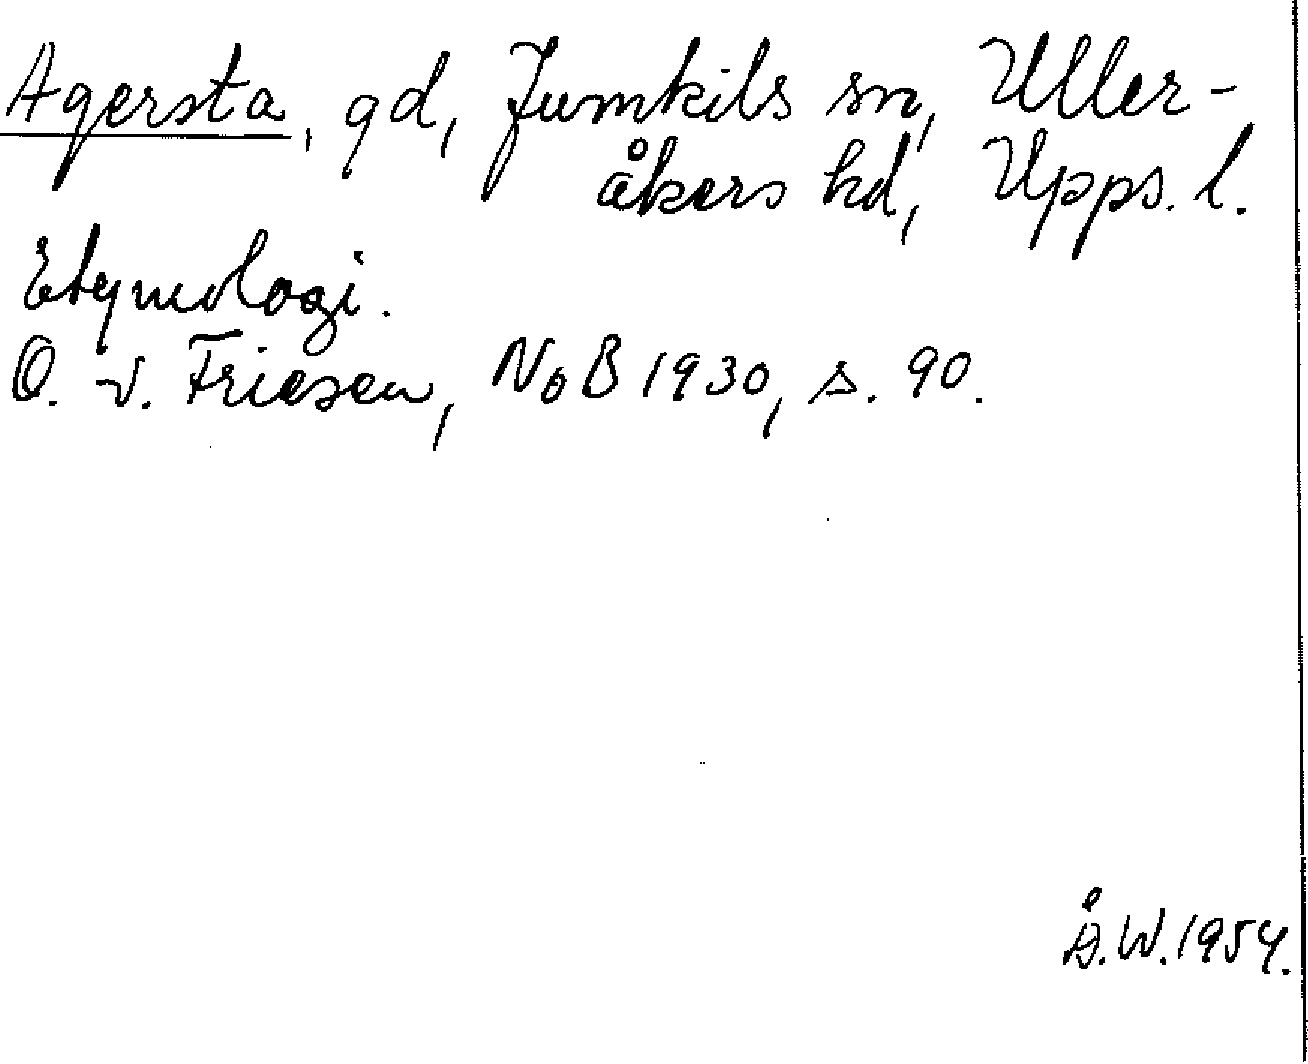 Agersta, gd, Jumkils sn, Uller-
åkers hd, Upps. l.
Etymologi.
O. v. Friesen, NoB 1930, s. 90.
Å.W. 1954.